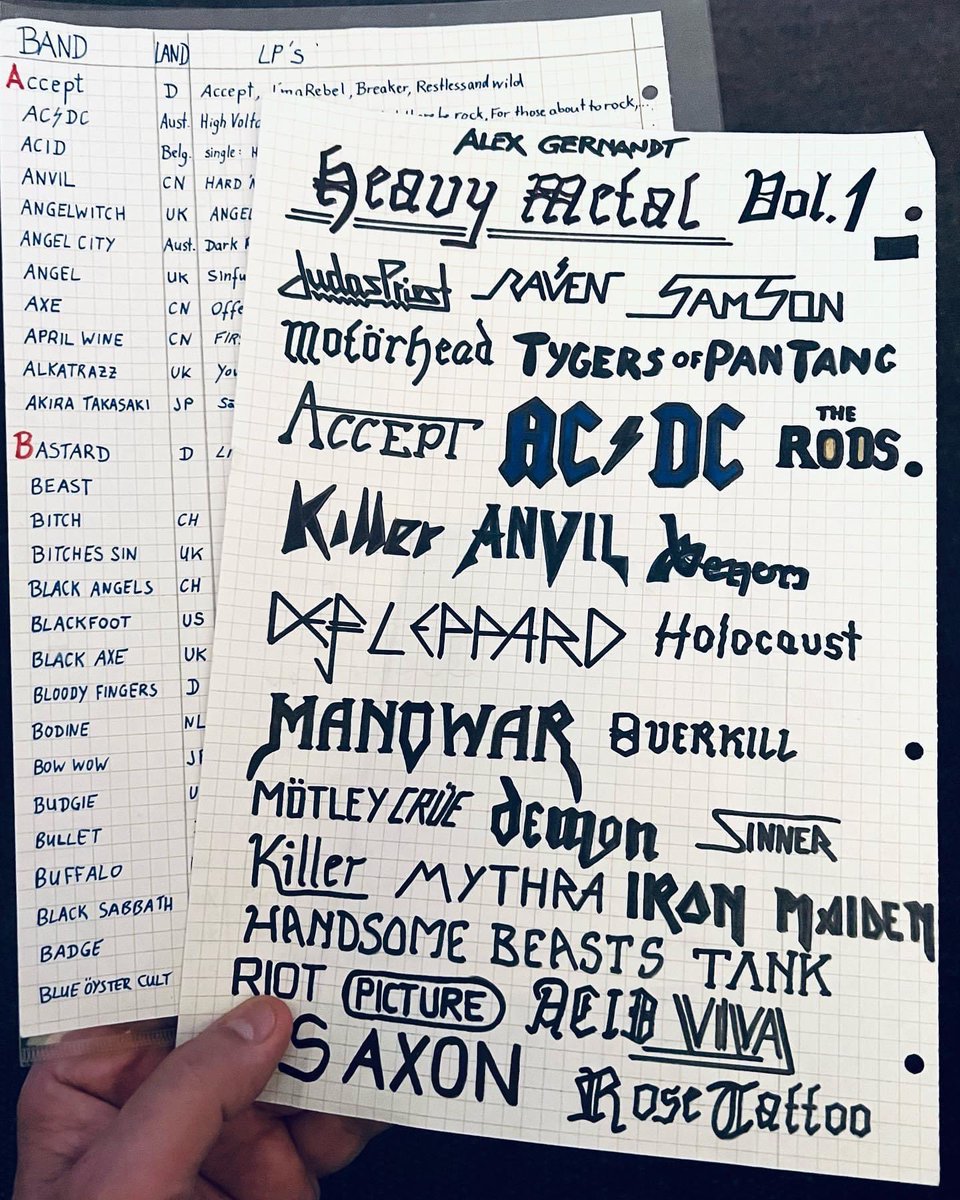 BAND LAND LP's
Accept D Accept, I'm a Rebel, Breaker, Restless and wild
AC⚡DC Aust. High Volta be rock, For those about to rock,...
ACID Belg. single: H
ANVIL CN HARD 'N
ANGELWITCH UK ANGEL
ANGEL CITY Aust. Dark
ANGEL UK Sinfu
AXE CN Offe
APRIL WINE CN FIRS
ALKATRAZZ UK You
AKIRA TAKASAKI JP
BASTARD D LI
BEAST
BITCH CH
BITCHES SIN UK
BLACK ANGELS CH
BLACKFOOT US
BLACK AXE UK
BLOODY FINGERS D
BODINE NL
BOW WOW
BUDGIE U
BULLET
BUFFALO
BLACK SABBATH
BADGE
BLUE ÖYSTER CULT
ALEX GERNANDT
Heavy Metal Vol.1
Judas Priest RAVEN SAMSON
Motörhead TYGERS OF PAN TANG
ACCEPT AC⚡DC THE RODS.
Killer ANVIL Venom
DEF LEPPARD Holocaust
MANOWAR OVERKILL
MÖTLEY CRÜE demon SINNER
Killer MYTHRA IRON MAIDEN
HANDSOME BEASTS TANK
RIOT PICTURE ACID VIVA
SAXON Rose Tattoo